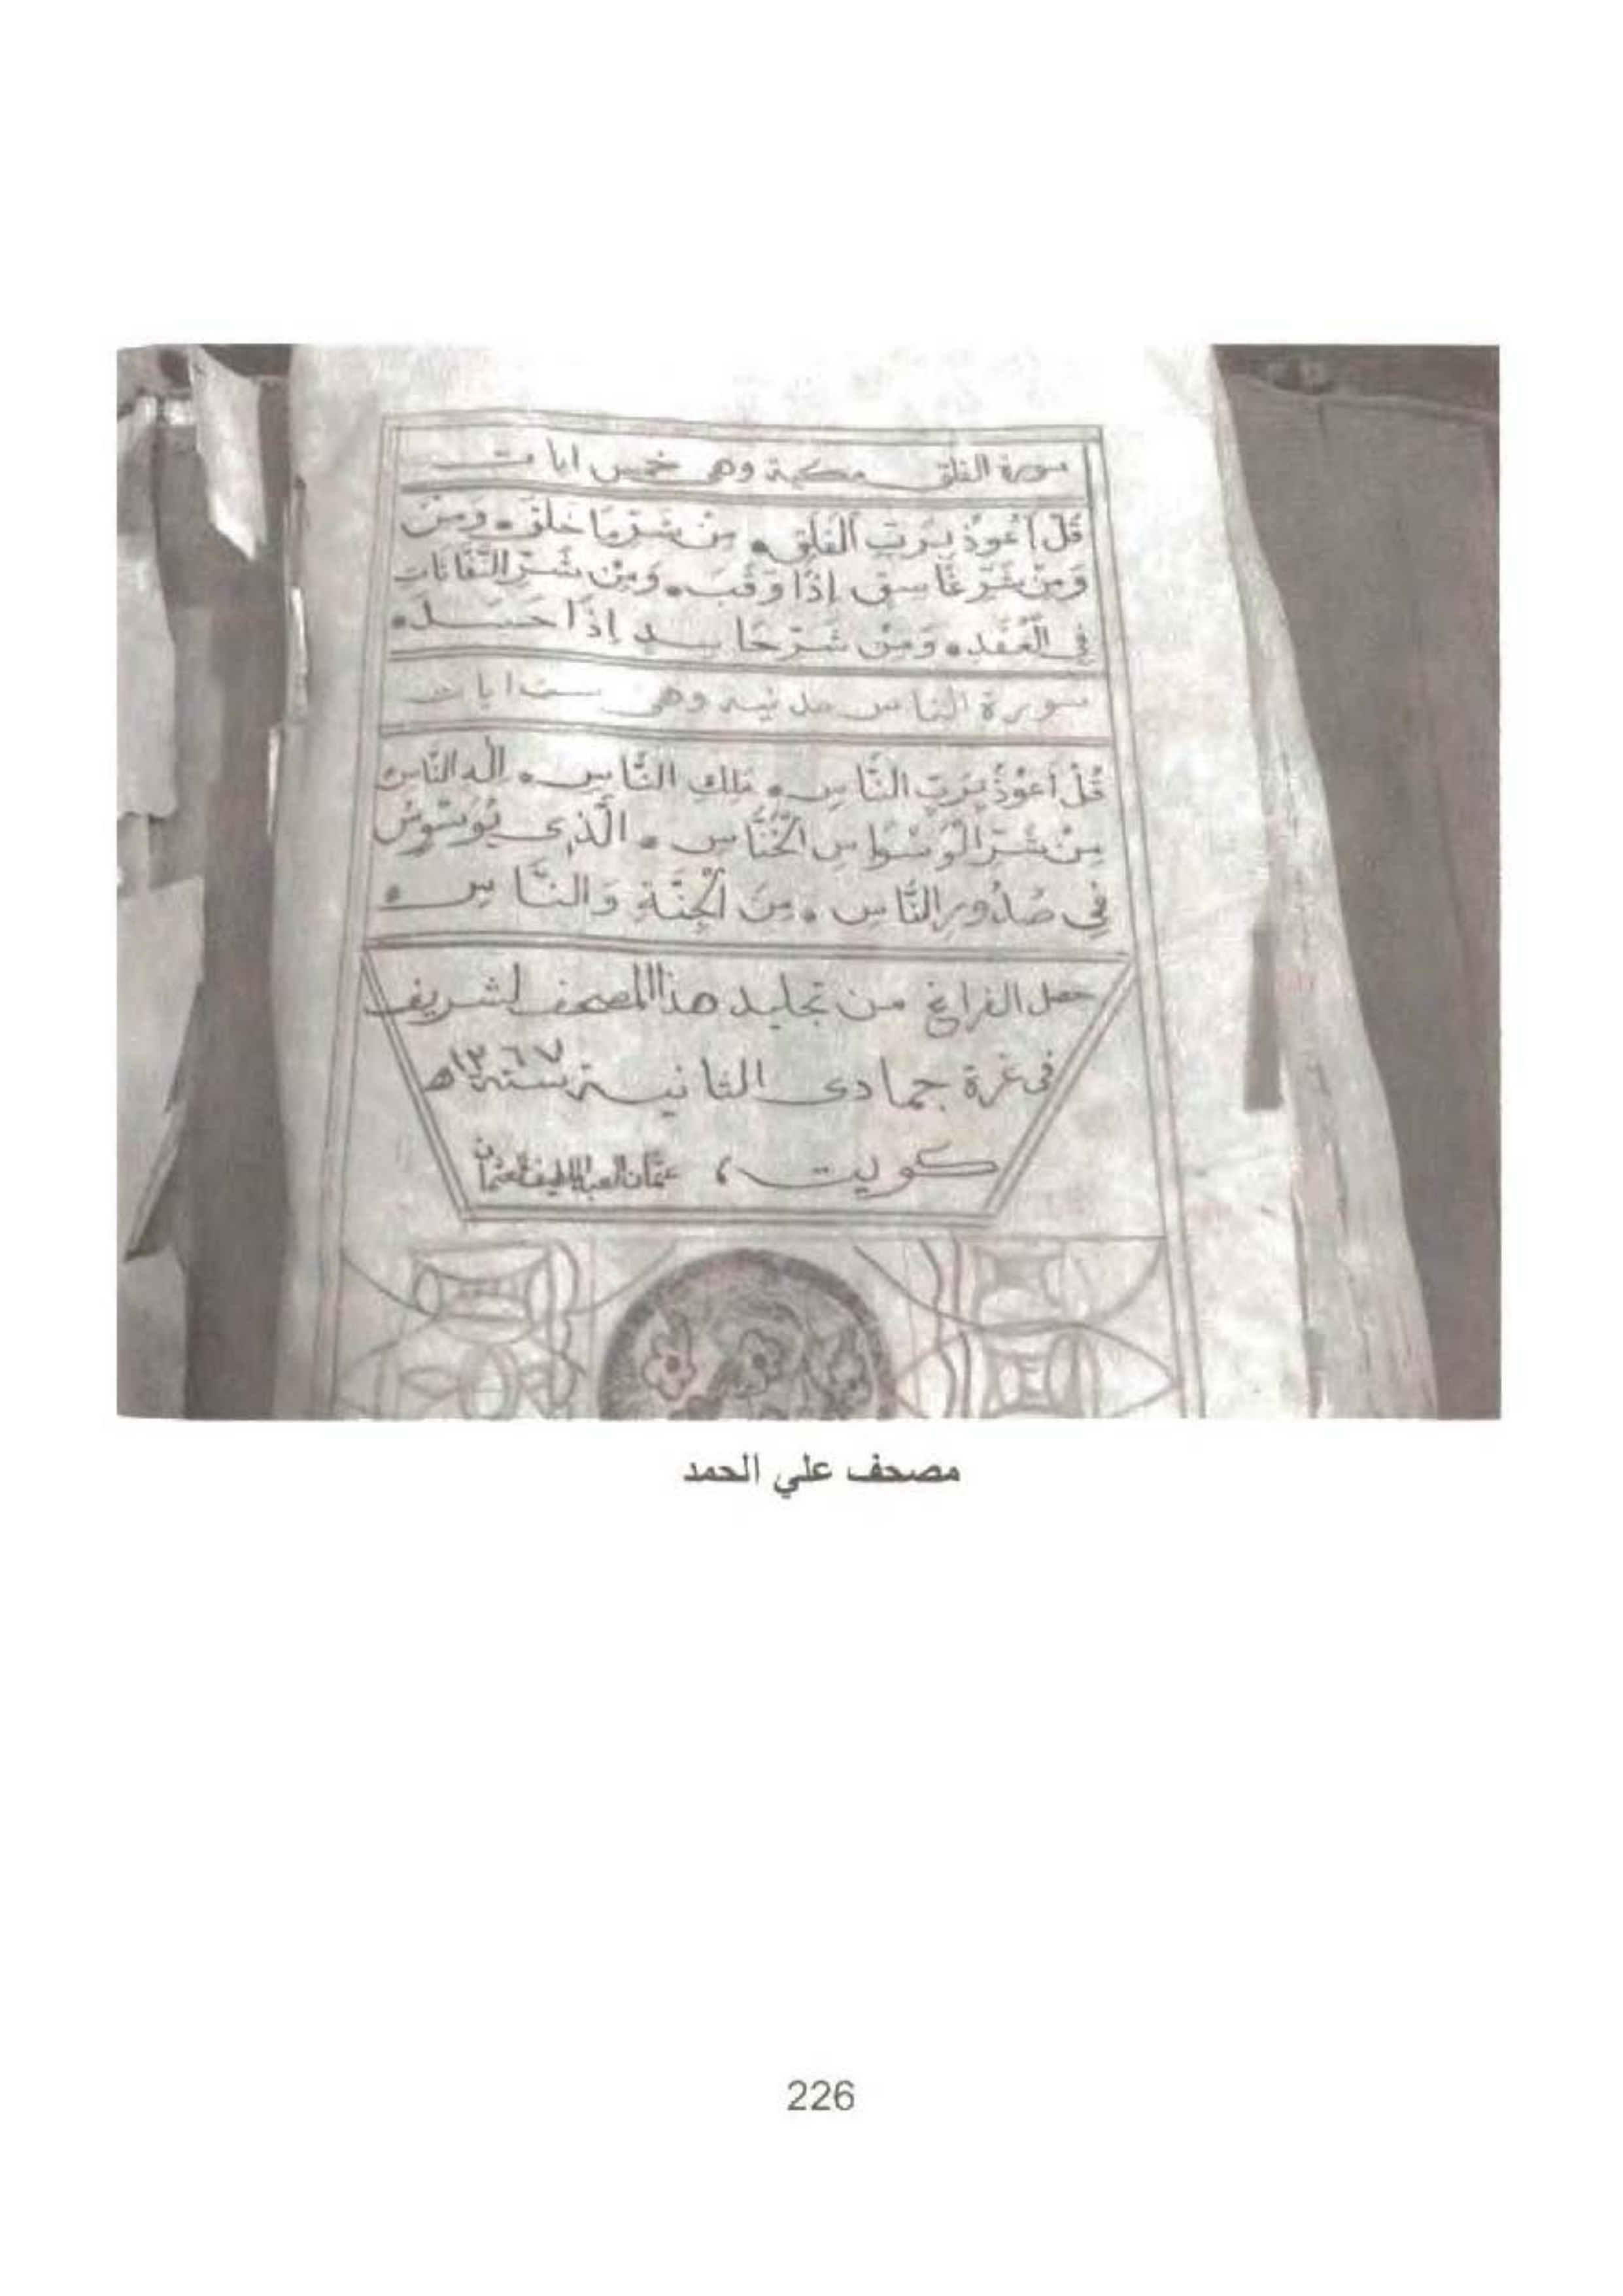 سورة الفلق مكية وهي خمس ايات
قُلْ اَعُوذُ بِرَبِّ الْفَلَقِ۰ مِنْ شَرِّ مَا خَلَقَ۰ وَمِنْ
وَمِنْ شَرِّ غَاسِقٍ اِذَا وَقَبَ۰ وَمِنْ شَرِّ النَّفَّاثَاتِ
فِي الْعُقَدِ۰ وَمِنْ شَرِّ حَاسِدٍ اِذَا حَسَدَ۰
سورة الناس مدنيه وهي ست ايات
قُلْ اَعُوْذُ بِرَبِّ النَّاسِ۰ مَلِكِ النَّاسِ۰ اِلٰهِ النَّاسِ
مِنْ شَرِّ الْوَسْوَاسِ الْخَنَّاسِ۰ الَّذِى يُوَسْوِسُ
فِي صُدُورِ النَّاسِ۰ مِنَ الْجِنَّةِ وَالنَّاسِ۰
حصل الفراغ من تجليد هذا المصحف لشريف
فى غرة جمادى الثانية سنة ١٣٦٧ه
كويت، عثمان العبداللطيف العثمان
مصحف علي الحمد
226